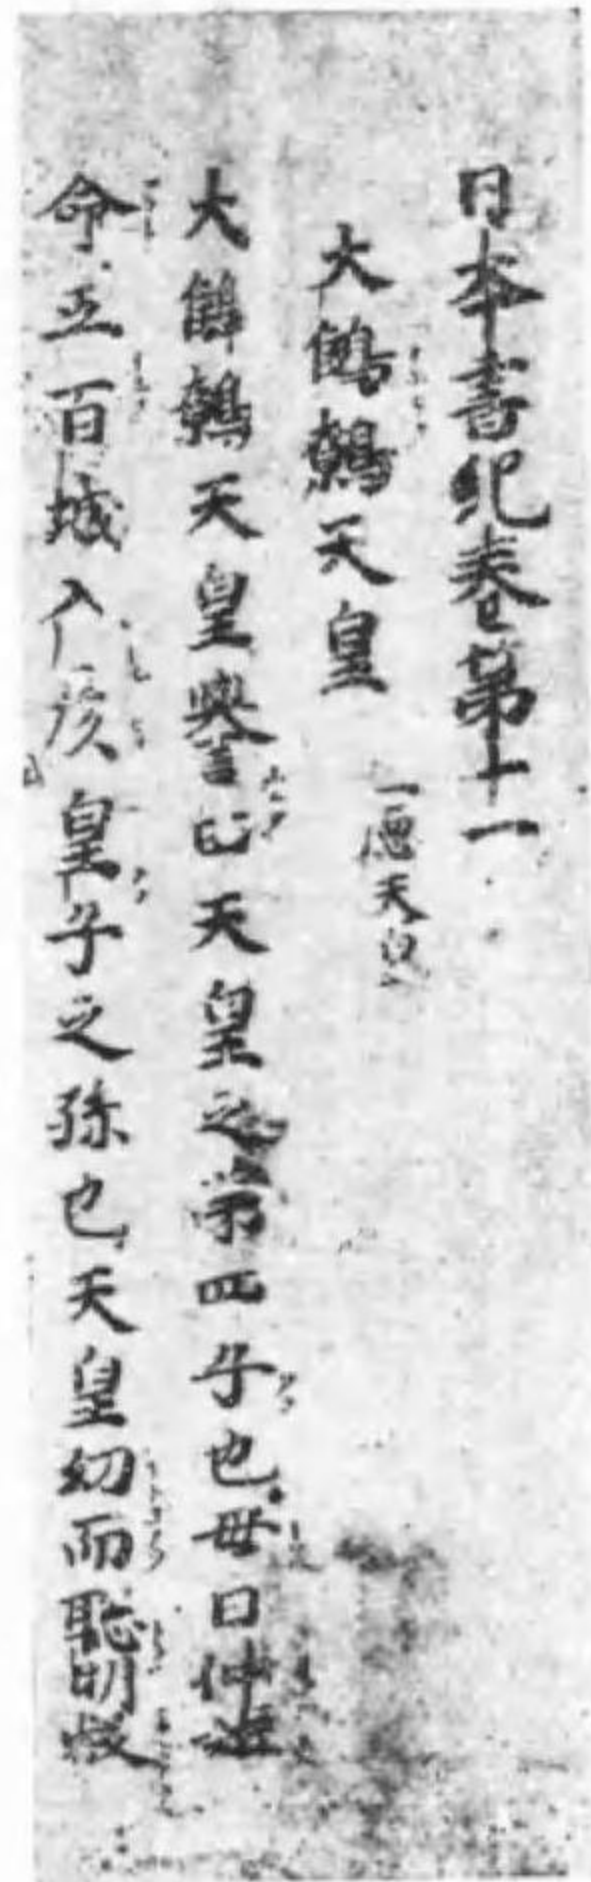 日本書紀卷第十一
大鷦鷯天皇 德天皇
大鷦鷯天皇譽田天皇之第四子也母曰仲姫
命五百城入彦皇子之孫也天皇幼而聡明叡